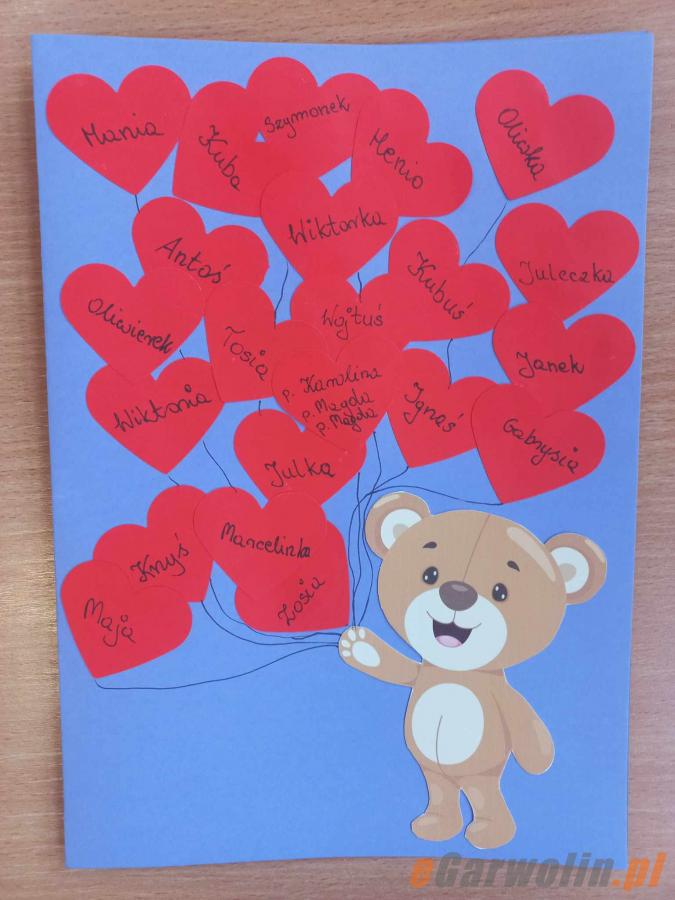 Mania
Kuba
Szymonek
Henio
Oliwka
Wiktorka
Antoś
Kubuś
Juleczka
Oliwierek
Tosia
Wojtuś
Janek
Wiktoria
p. Karolina
p. Magda
p. Magda
Ignaś
Gabrysia
Julka
Marcelinka
Kryś
Zosia
Maja
eGarwolin.pl